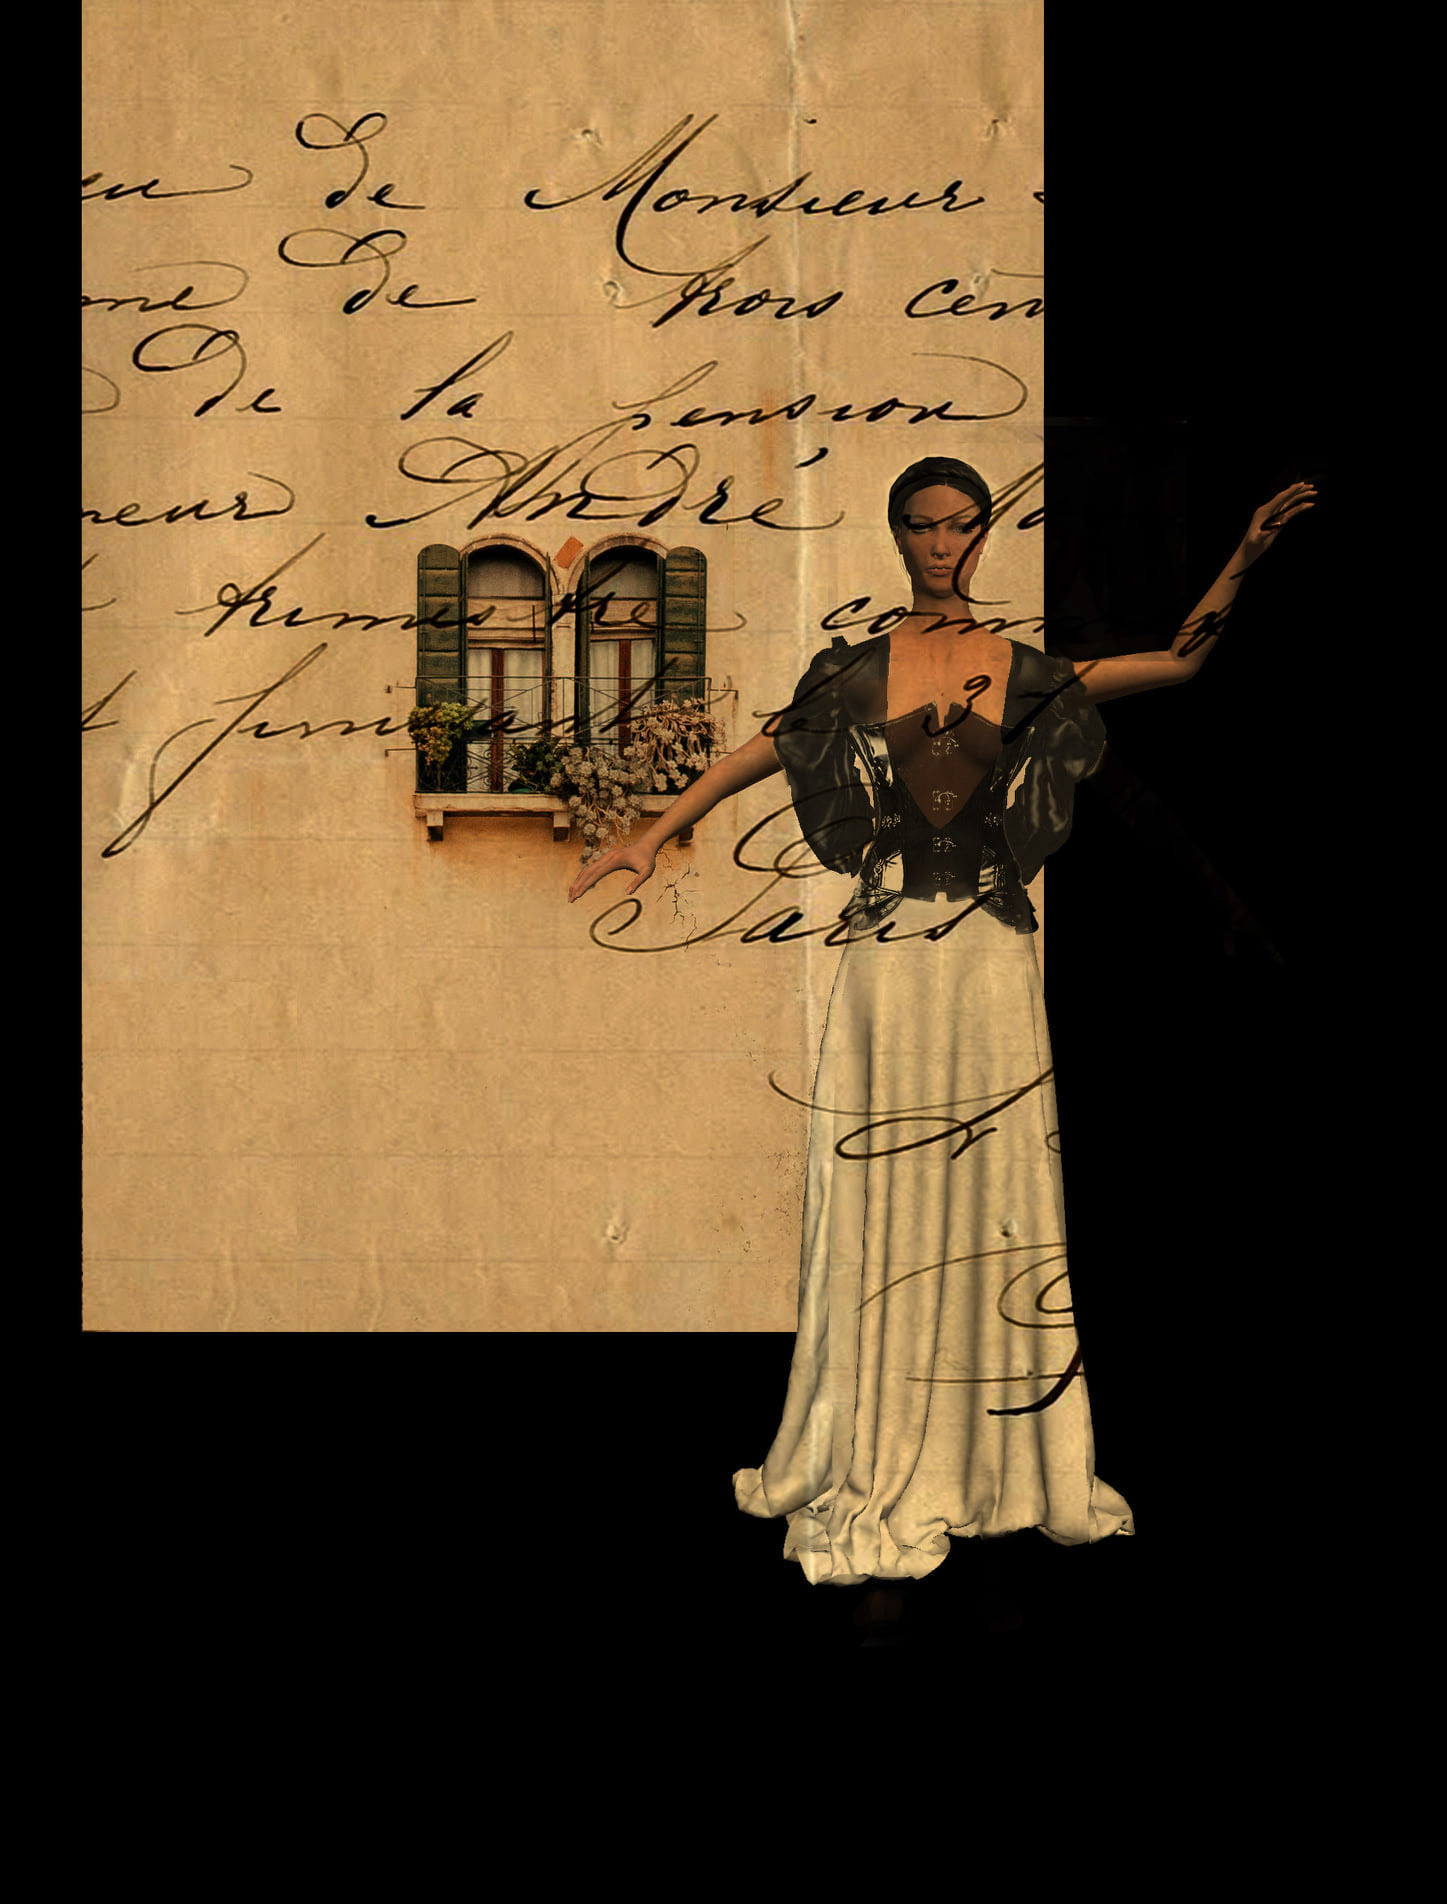 de Monsieur
de trois cen
de la pension
neur André
trimestre comm
finissant le 31
Paris